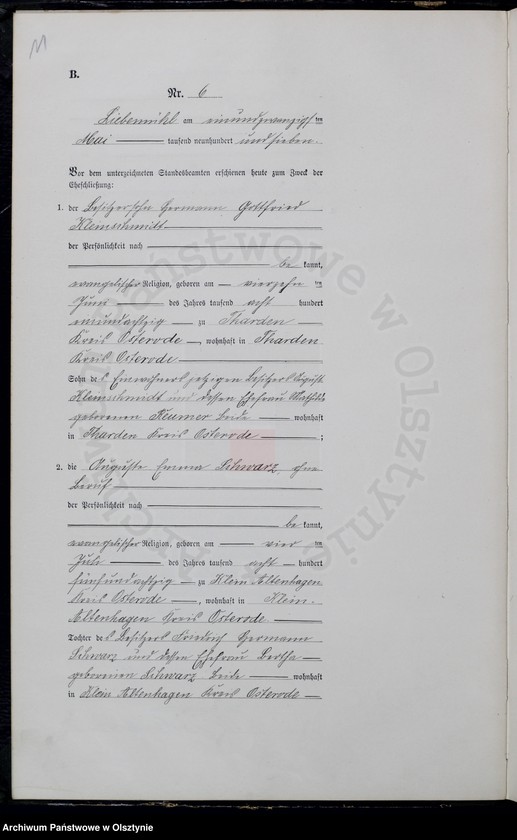 B.
Nr. 6
Liebemühl am einundzwanzigsten
Mai tausend neunhundert und sieben.
Vor dem unterzeichneten Standesbeamten erschienen heute zum Zweck der
Eheschließung:
1. der Besitzersohn Hermann Gottfried
Kleinschmidt
der Persönlichkeit nach
be kannt,
evangelischer Religion, geboren am vierzehn ten
Juni des Jahres tausend acht hundert
einundachtzig zu Tharden
Kreis Osterode, wohnhaft in Tharden
Kreis Osterode
Sohn des Einwohners jetzigen Besitzers August
Kleinschmidt und dessen Ehefrau Mathilde
geborenen beide wohnhaft
in Tharden Kreis Osterode ;
2. die Auguste Emma Schwarz, ohne
Beruf
der Persönlichkeit nach
be kannt,
evangelischer Religion, geboren am vier ten
Juli des Jahres tausend acht hundert
fünfundachtzig zu Klein Altenhagen
Kreis Osterode, wohnhaft in Klein-
Altenhagen Kreis Osterode
Tochter des Besitzers Friedrich Hermann
Schwarz und dessen Ehefrau Bertha
geborenen Schwarz beide wohnhaft
in Klein Altenhagen Kreis Osterode
Archiwum Państwowe w Olsztynie
Archiwum Państwowe w Olsztynie